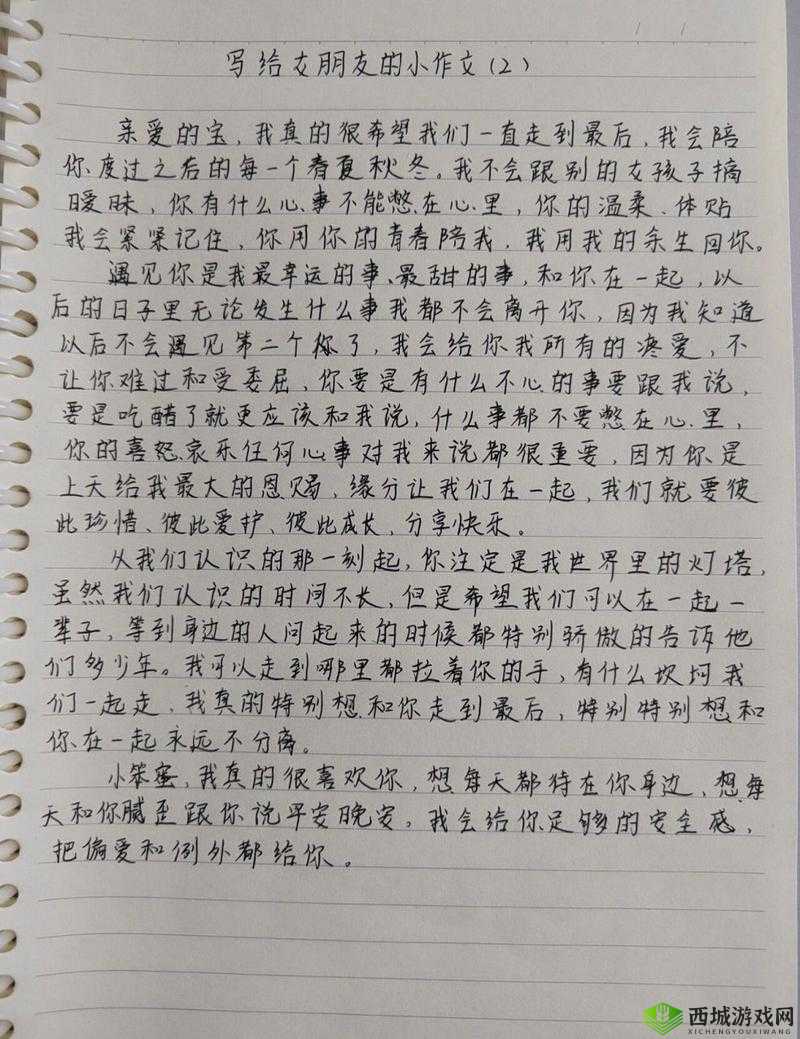 写给女朋友的小作文(2)
亲爱的宝,我真的很希望我们一直走到最后,我会陪
你度过之后的每一个春夏秋冬。我不会跟别的女孩子搞
暧昧,你有什么心事不能憋在心里,你的温柔、体贴
我会紧紧记住,你用你的青春陪我,我用我的余生回你。
遇见你是我最幸运的事、最甜的事,和你在一起,以
后的日子里无论发生什么事我都不会离开你,因为我知道
以后不会遇见第二个你了,我会给你我所有的疼爱,不
让你难过和受委屈,你要是有什么不心的事要跟我说,
要是吃醋了就更应该和我说,什么事都不要憋在心里,
你的喜怒哀乐任何心事对我来说都很重要,因为你是
上天给我最大的恩赐,缘分让我们在一起,我们就要彼
此珍惜、彼此爱护、彼此成长,分享快乐。
从我们认识的那一刻起,你注定是我世界里的灯塔,
虽然我们认识的时间不长,但是希望我们可以在一起一
辈子,等到身边的人问起来的时候都特别骄傲的告诉他
们多少年。我可以走到哪里都拉着你的手,有什么坎坷我
们一起走,我真的特别想和你走到最后,特别特别想和
你在一起永远不分离。
小笨蛋,我真的很喜欢你,想每天都待在你身边,想每
天和你腻歪跟你说早安晚安。我会给你足够的安全感,
把偏爱和例外都给你。
西城游戏网
XICHENGYOUXIWANG